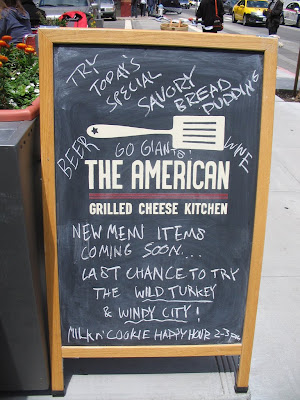 TRY
TODAY'S
SPECIAL
SAVORY
BREAD
PUDDING
BEER
GO GIANTS!
WINE
THE AMERICAN
GRILLED CHEESE KITCHEN
NEW MENU ITEMS
COMING SOON...
LAST CHANCE TO TRY
THE WILD TURKEY
& WINDY CITY!
MILK n' COOKIE HAPPY HOUR 2-3PM